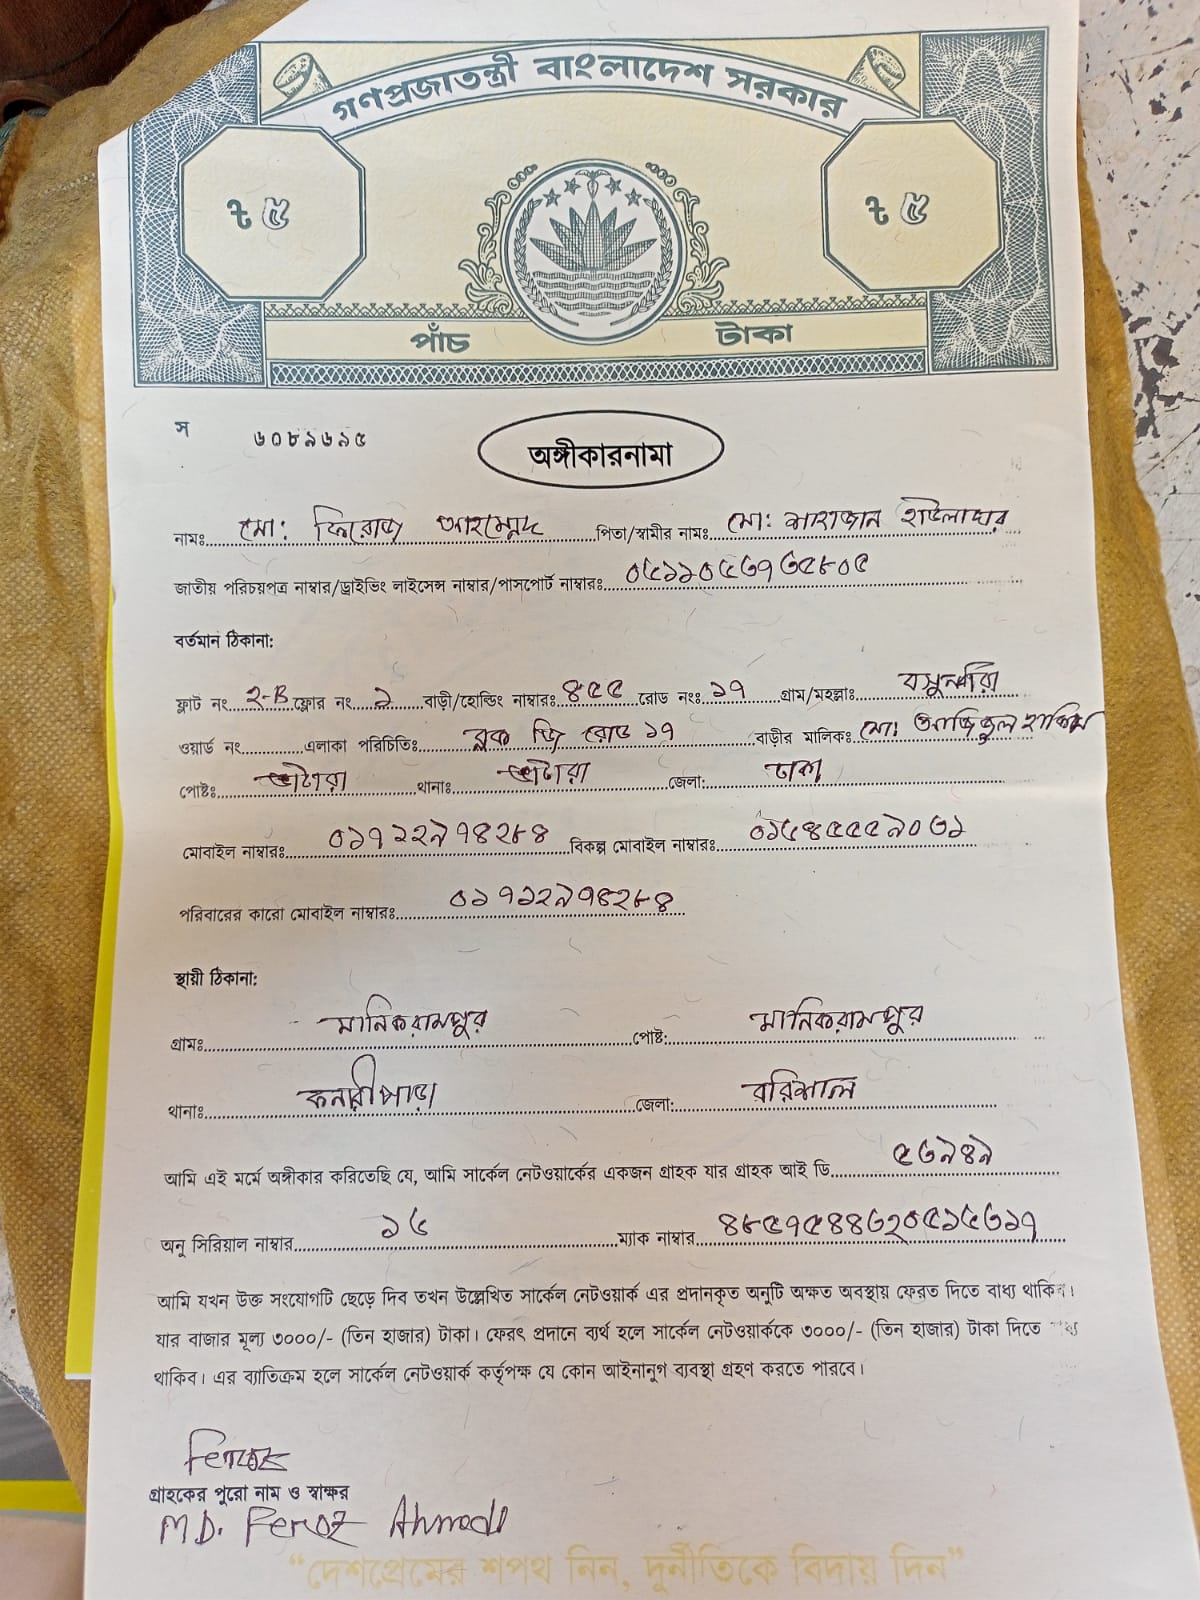 গণপ্রজাতন্ত্রী বাংলাদেশ সরকার
৳ ৫ ৳ ৫
পাঁচ টাকা
স ৬০৮৯৬৯৫
অঙ্গীকারনামা
নামঃ মো: ফিরোজ আহম্মেদ পিতা/স্বামীর নামঃ মো: শাহাজান হাওলাদার
জাতীয় পরিচয়পত্র নাম্বার/ড্রাইভিং লাইসেন্স নাম্বার/পাসপোর্ট নাম্বারঃ
বর্তমান ঠিকানা:
ফ্লাট নং ২-B ফ্লোর নং ২ বাড়ী/হোল্ডিং নাম্বারঃ ৪৫৫ রোড নংঃ ১৭ গ্রাম/মহল্লাঃ বসুন্ধরা
ওয়ার্ড নং এলাকা পরিচিতিঃ ব্লক জি রোড ১৭ বাড়ীর মালিকঃ মো: আজিজুল হাকিম
পোষ্টঃ ভাটারা থানাঃ ভাটারা জেলা: ঢাকা
মোবাইল নাম্বারঃ ০১৭১২৯৭৪২৮৪ বিকল্প মোবাইল নাম্বারঃ
পরিবারের কারো মোবাইল নাম্বারঃ ০১৭১২৯৭৪২৮৪
স্থায়ী ঠিকানা:
গ্রামঃ মানিকরামপুর পোষ্ট: মানিকরামপুর
থানাঃ জেলা: বরিশাল
আমি এই মর্মে অঙ্গীকার করিতেছি যে, আমি সার্কেল নেটওয়ার্কের একজন গ্রাহক যার গ্রাহক আই ডি ৫৩৯৪৯
অনু সিরিয়াল নাম্বার ১৫ ম্যাক নাম্বার
আমি যখন উক্ত সংযোগটি ছেড়ে দিব তখন উল্লেখিত সার্কেল নেটওয়ার্ক এর প্রদানকৃত অনুটি অক্ষত অবস্থায় ফেরত দিতে বাধ্য থাকিব।
যার বাজার মূল্য ৩০০০/- (তিন হাজার) টাকা। ফেরৎ প্রদানে ব্যর্থ হলে সার্কেল নেটওয়ার্ককে ৩০০০/- (তিন হাজার) টাকা দিতে
থাকিব। এর ব্যতিক্রম হলে সার্কেল নেটওয়ার্ক কর্তৃপক্ষ যে কোন আইনানুগ ব্যবস্থা গ্রহণ করতে পারবে।
Feroz
গ্রাহকের পুরো নাম ও স্বাক্ষর
MD. Feroz Ahmed
“দেশপ্রেমের শপথ নিন, দুর্নীতিকে বিদায় দিন”